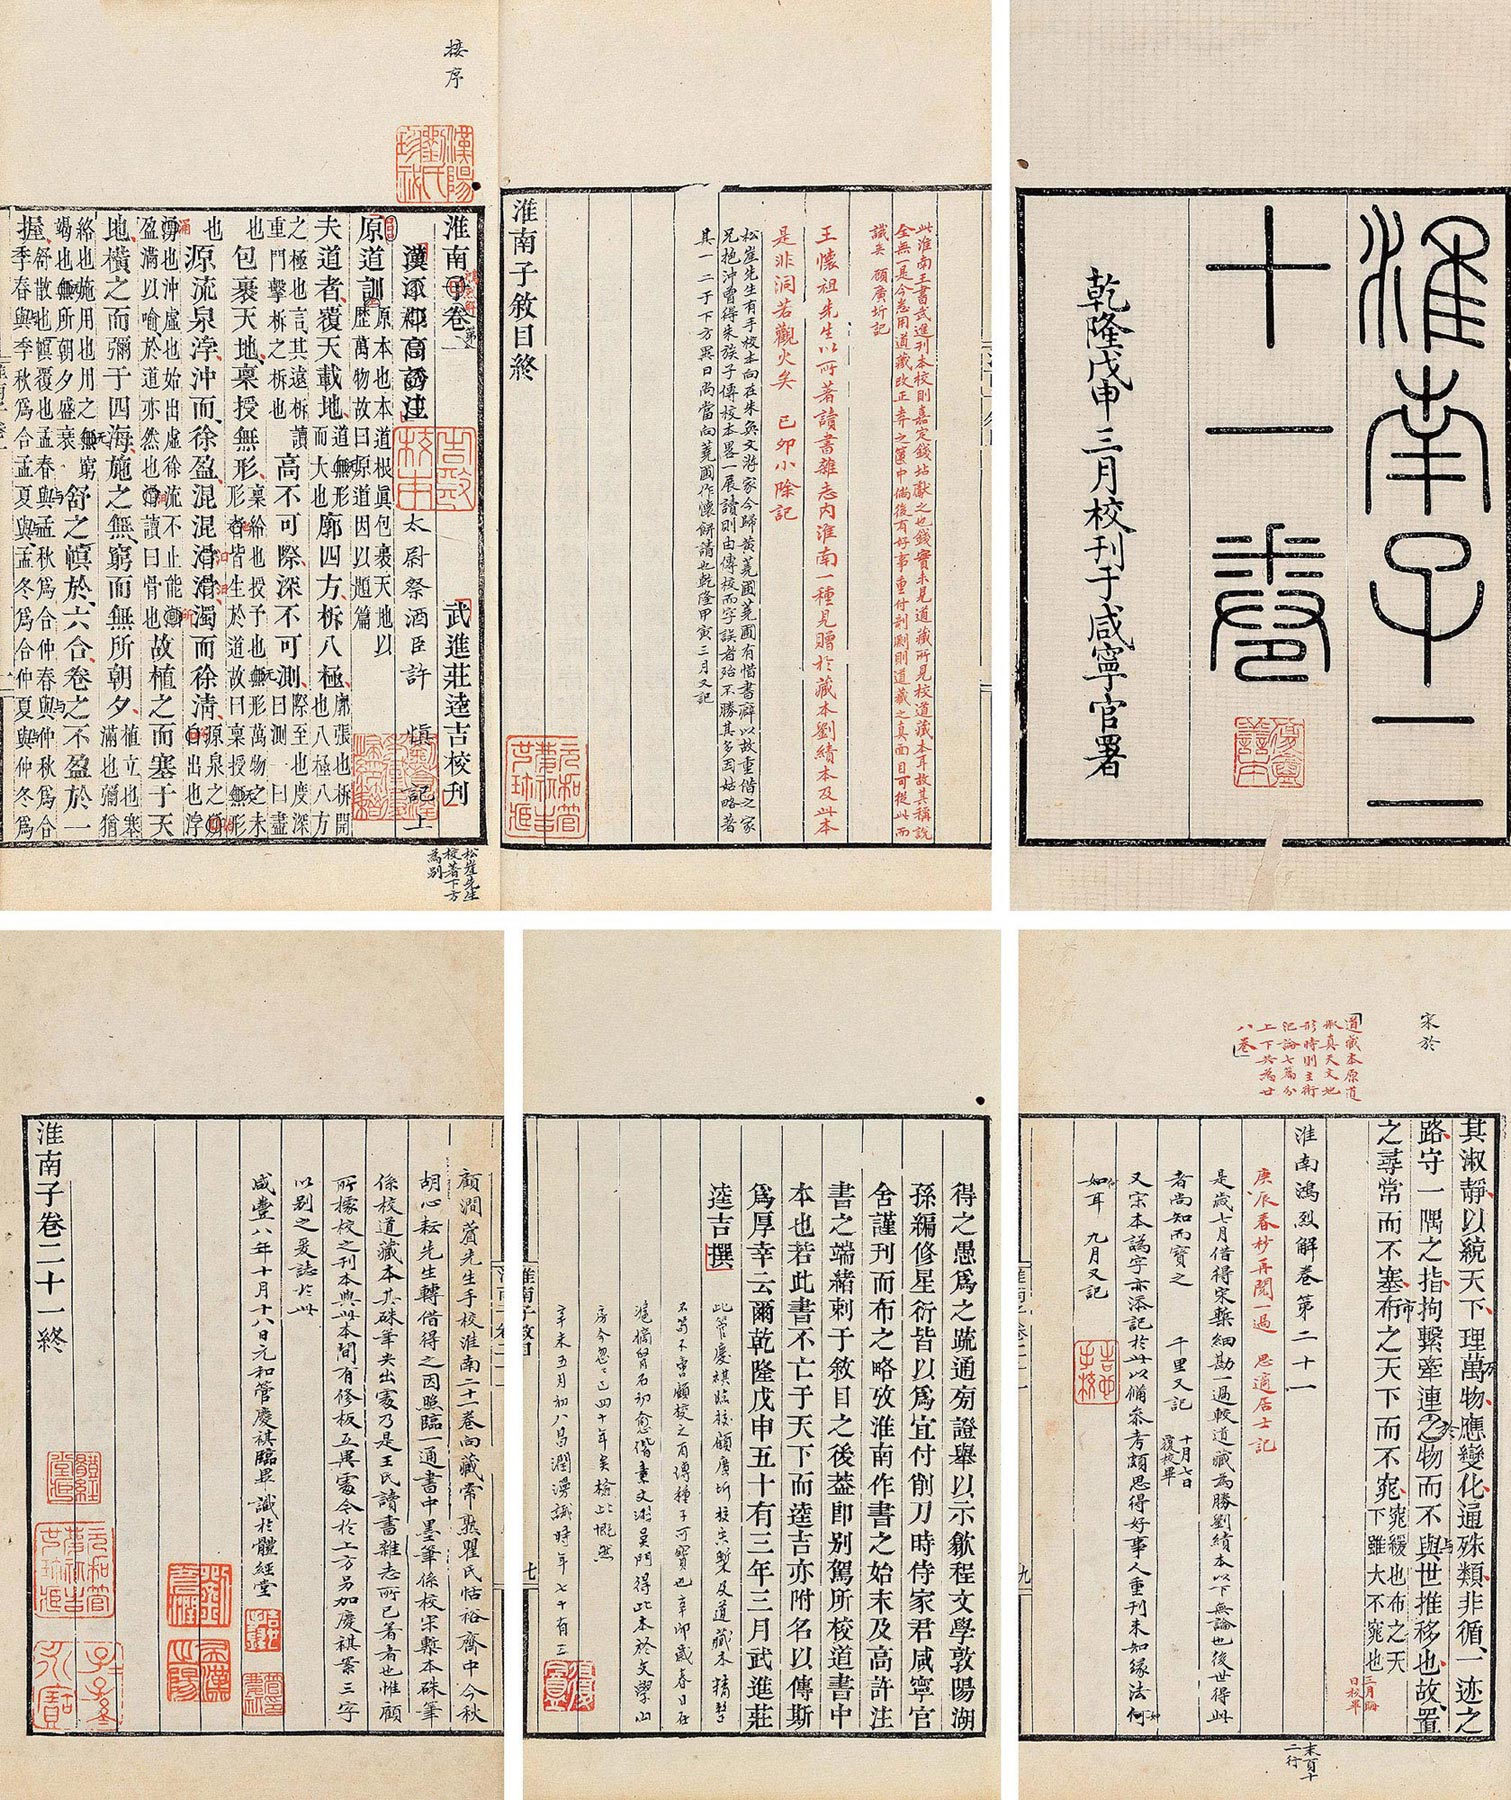 淮南子二
十一卷
乾隆戊申三月校刊于咸寧官署
此淮南王書武進刊本校則嘉定錢坫獻之也錢實未見道藏所見校道藏本耳故其稱說
全無一是今悉用道藏改正弆之篋中倘後有好事重付剞劂則道藏之真面目可從此而
識矣 顧廣圻記
王懷祖先生以所著讀書雜志內淮南一種見贈於藏本劉績本及此本
是非洞若觀火矣 己卯小除記
松崖先生有手校本向在朱奐文游家今歸黃蕘圃蕘圃有惜書癖以故重借之家
兄抱沖曾得朱族子傳校本畧一展讀則由傳校而字誤者殆不勝其多因姑略著
其一二于下方異日尚當向蕘圃作懷餅請也乾隆甲寅三月又記
淮南子敘目終
按序
漢陽劉氏珍祕
淮南子卷一
武進莊逵吉校刊
漢涿郡高誘注
太尉祭酒臣許 慎 記上
原道訓
原本也本道根真包裹天地以
歷萬物故曰原道因以題篇
夫道者覆天載地
道無形
而大也
廓四方柝八極
廓張也柝開
也八極八方
之極也言其遠柝讀
重門擊柝之柝也
高不可際深不可測
際至也度深
曰測一曰盡
也
包裹天地稟授無形
稟給也授予也無形萬物之未
形者皆生於道故曰稟授無形
也
源流泉浡沖而徐盈混混滑滑濁而徐清
源泉之
自出也浡
涌也沖虛也始出虛徐流不止能
盈滿以喻於道亦然也滑讀曰骨也
故植之而塞于天
地橫之而彌于四海施之無窮而無所朝夕
植立也塞
滿也彌猶
絡也施用也用之無窮
竭也無所朝夕盛衰
舒之幎於六合卷之不盈於一
握
舒散也幎覆也孟春與孟秋為合仲春與仲秋為合
季春與季秋為合孟夏與孟冬為合仲夏與仲冬為
松崖先生
校著下方
為別
宋於
道藏本原道
俶真天文地
形時則主術
氾論七篇分
上下共為廿
八卷
其淑靜以統天下理萬物應變化通殊類非循一迹之
路守一隅之指拘繫牽連之物而不與世推移也故置
之尋常而不塞布之天下而不窕
窕緩也布之天
下雖大不窕也
三月晦
日校畢
淮南鴻烈解卷第二十一
庚辰春杪再閱一過 思適居士記
是歲七月借得宋槧細勘一過較道藏為勝劉績本以下無論也後世得此
者尚知而寶之 千里又記
十月七日
覆校畢
又宋本譌字亦添記於此以備參考頗思得好事人重刊未知緣法何
如耳 九月又記
末頁十
二行
得之愚為之疏通旁證舉以示歙程文學敦陽湖
孫編修星衍皆以為宜付削刀時侍家君咸寧官
舍謹刊而布之略攷淮南作書之始末及高許注
書之端緒刺于敘目之後葢即別駕所校道書中
本也若此書不亡于天下而逵吉亦附名以傳斯
為厚幸云爾乾隆戊申五十有三年三月武進莊
逵吉撰
此管慶祺臨校顧廣圻校宋槧及道藏本精整
不苟不啻顧校之有傳種子可寶也辛卯歲春日在
滬
房今忽忽已四十年矣檢此慨然
辛未五月初八昌潤漫識時年七十有三
顧澗薲先生手校淮南二十一卷向藏常熟瞿氏恬裕齋中今秋
胡心耘先生轉借得之因照臨一通書中墨筆係校宋槧本硃筆
係校道藏本其硃筆夾出處乃是王氏讀書雜志所已著者也惟顧
所據校之刊本與此本間有修板互異處今於上方另加慶祺案三字
以別之爰誌於此
咸豐八年十月十八日元和管慶祺臨畢識於體經堂
淮南子卷二十一終